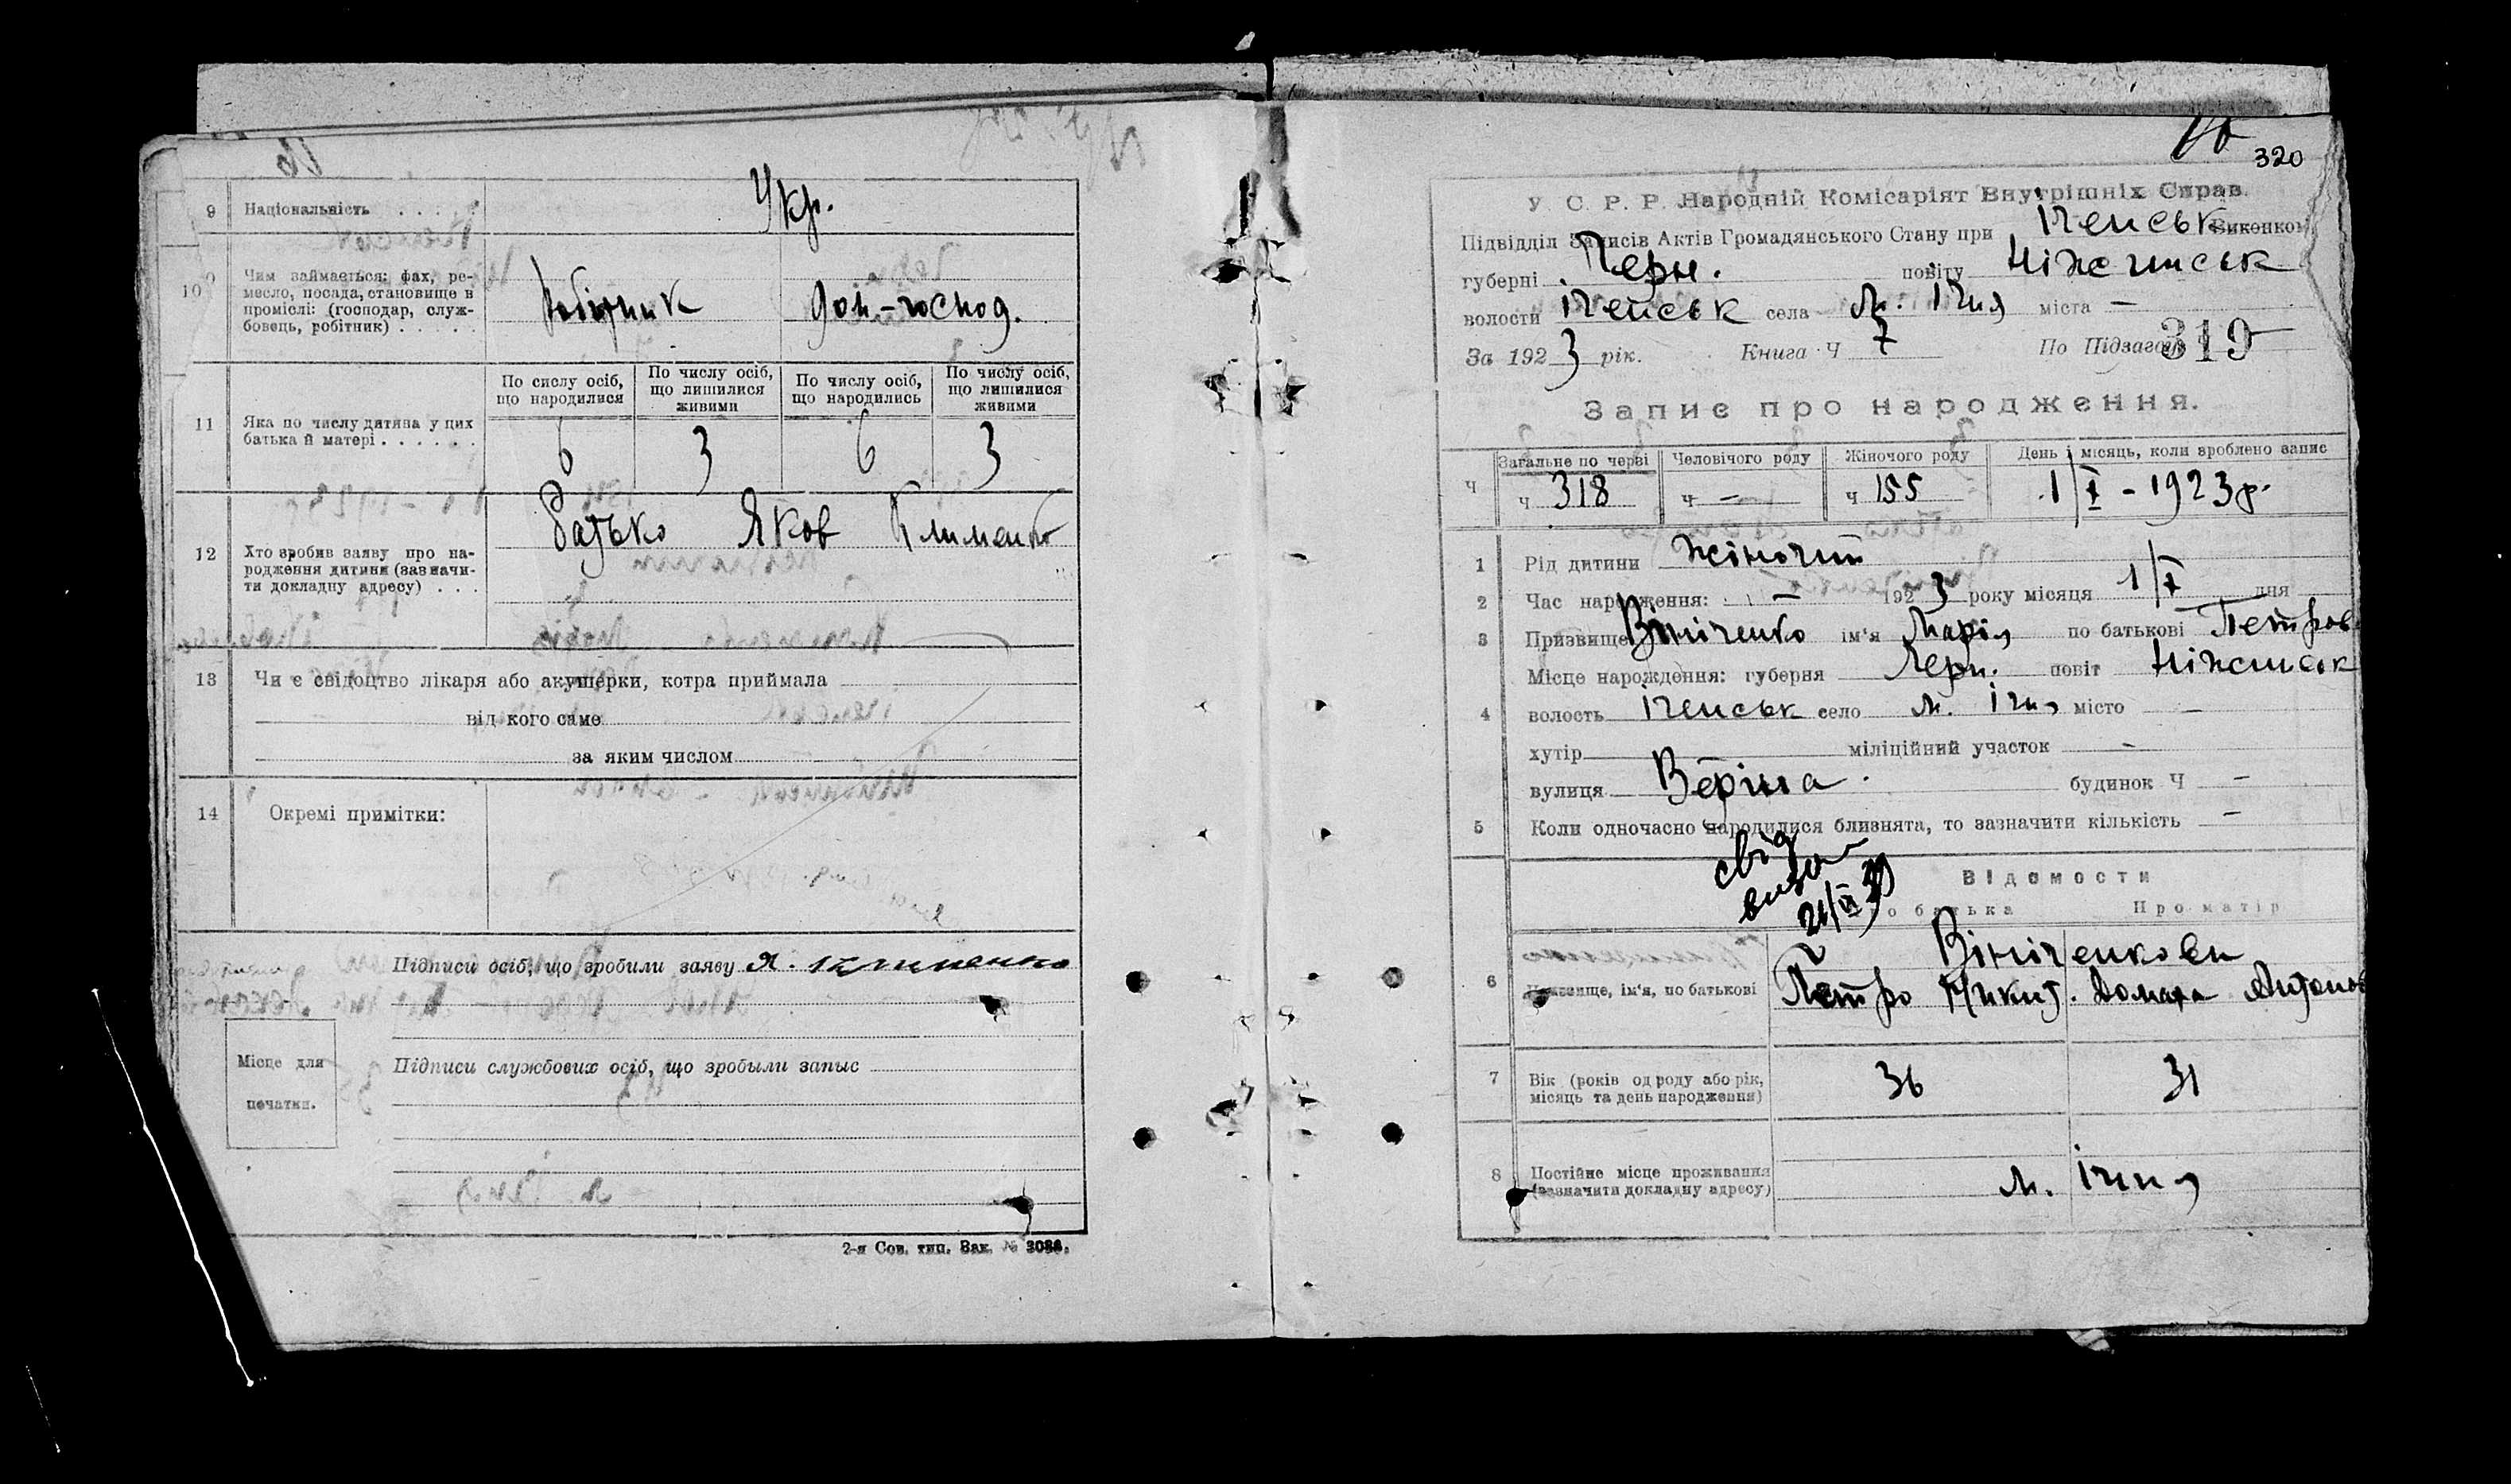 9 Національність . . . . . Укр.
10 Чим займається: фах, ре-
месло, посада, становище в
проміслі: (господар, служ-
бовець, робітник) . . . . .
Робітник дом-господ.
11 Яка по числу дитина у цих
батька й матері . . . . . .
По сислу осіб,
що народилися
По числу осіб,
що лишилися
живими
По числу осіб,
що народились
По числу осіб,
що лишилися
живими
6 3 6 3
12 Хто зробив заяву про на-
родження дитини (зазначи-
ти докладну адресу) . . .
Батько Яков Клименко
13 Чи є свідоцтво лікаря або акушерки, котра приймала
від кого саме
за яким числом
14 Окремі примітки:
Підписи осіб, що зробили заяву Я. Клименко
Місце для
печатки.
Підписи службових осіб, що зробыли запыс
2-я Сов. тип. Зак. № 3038.
320
У. С. Р. Р. Народній Комісаріят Внутрішніх Справ.
Підвідділ Записів Актів Громадянського Стану при Іченськ Виконком
губерні Черн. повіту Ніжинськ
волости Іченськ села м. Ічня міста —
За 1923 рік. Книга Ч 7 По Підзаголов 319
Запис про народження.
Ч
Загальне по черзі Человічого роду Жіночого роду День і місяць, коли зроблено запис
ч 318 ч — ч 155 1/X - 1923 р.
1 Рід дитини жіночий
2 Час народження: — 1923 року місяця 1/X дня
3 Призвище Вініченко ім'я Марія по батькові Петров
4 Місце народження: губерня Черн. повіт Ніжинськ
волость Іченськ село м. Ічня місто —
хутір міліційний участок —
вулиця Веріна будинок Ч —
5 Коли одночасно народилися близнята, то зазначити кількість —
свід
видан
21/IX 39
Відомости
Про батька Про матір
6 Призвище, ім'я, по батькові
Вініченкови
Петро Никит. Домаха Антонов
7 Вік (років од роду або рік,
місяць та день народження)
36 31
8 Постійне місце проживання
(зазначити докладну адресу)
м. Ічня